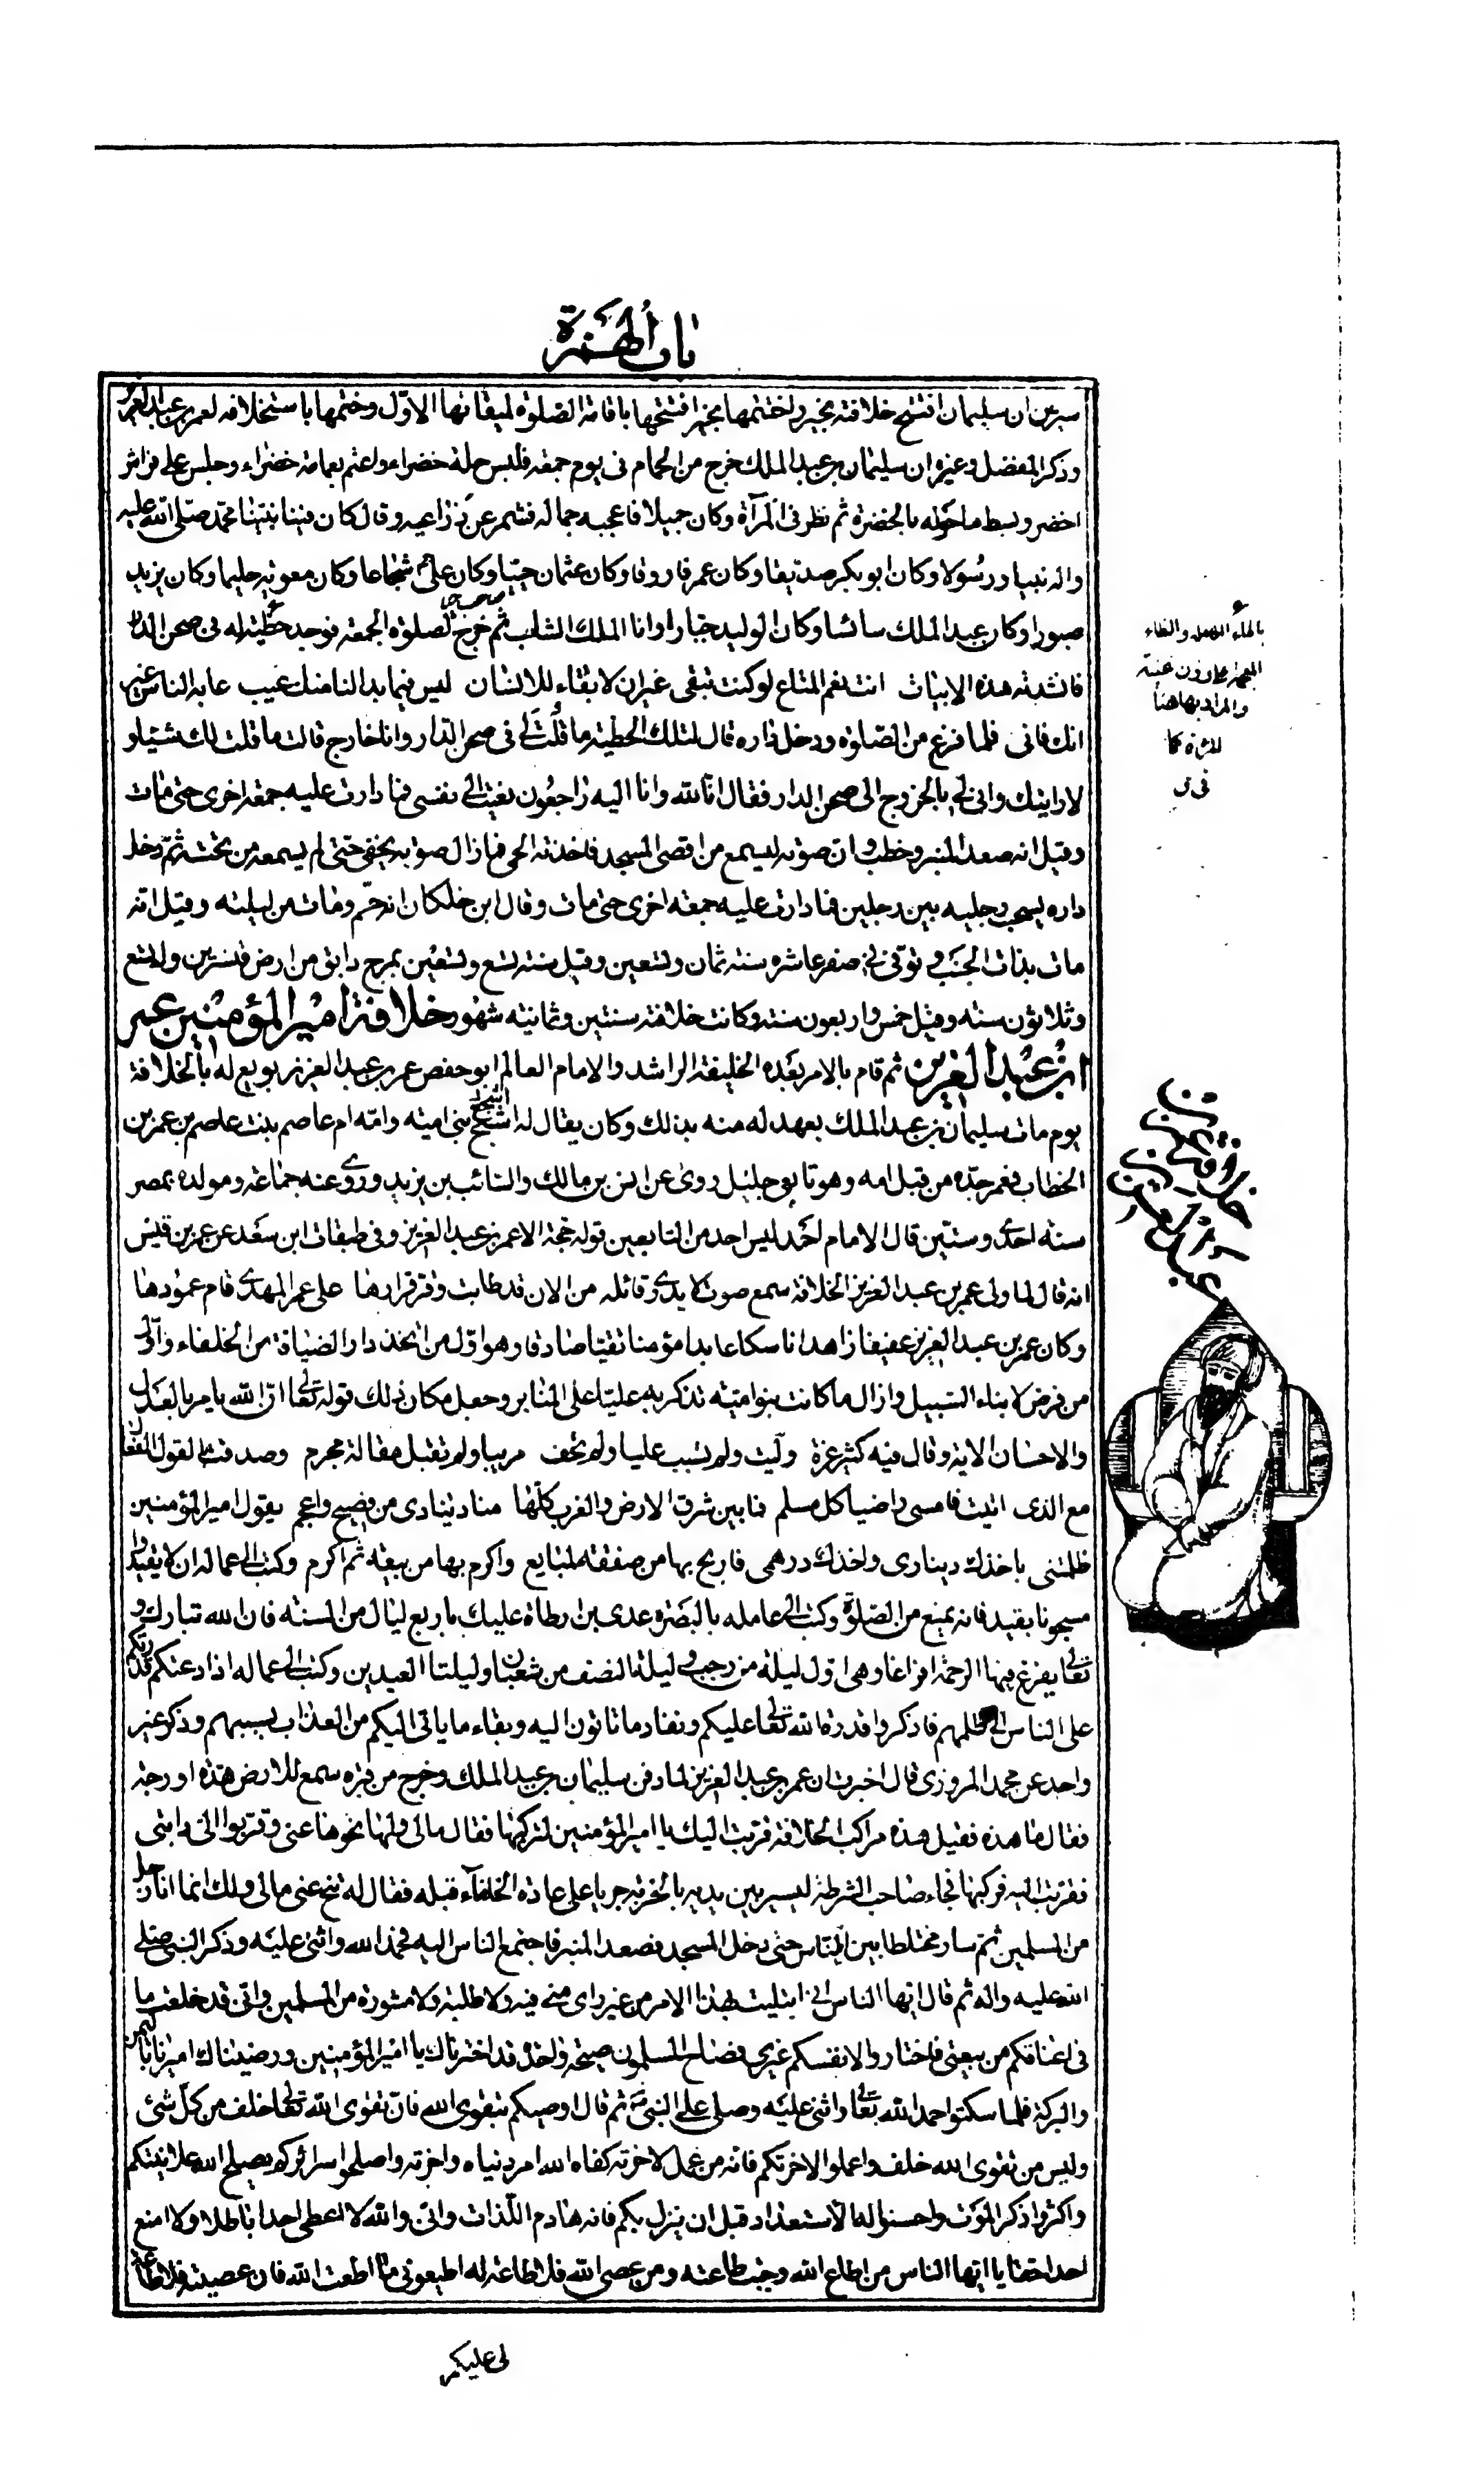 باب الهمزة
سيرين ان سليمان افتتح خلافته بخير واختتمها بخير افتتحها باقامة الصلوة لميقاتها الاوّل وختمها باستخلافه لعمر بن عبد العزيز
وذكر المفضل وغيره ان سليمان بن عبد الملك خرج من الحمام فى يوم جمعه فلبس حلة خضراء واعتم بعمامة خضراء وجلس على فراش
اخضر وبسط ما حوله بالخضرة ثم نظر فى المرآة وكان جميلا فاعجبه جماله فشمر عن ذراعيه وقال كان فينا نبيّنا محمد صلّى الله عليه
واله نبيا ورسولا وكان ابو بكر صديقا وكان عمر فاروقا وكان عثمان حييّا وكان على شجاعا وكان معويه حليما وكان يزيد
صبورا وكان عبد الملك سائسا وكان الوليد جبارا وانا الملك الشاب ثم خرج لصلوة الجمعه فوجد حظيته له فى صحن الدار
فانشدته هذه الابيات انت نعم المتاع لو كنت تبقى غير ان لا بقاء للانسان ليس فيما بدا لنا منك عيب عابه الناس غير
انك فانى فلما فرغ من الصلوة ودخل داره قال لتلك الحظية ما قلت لى فى صحن الدار وانا خارج قالت ما قلت لك شيئا و
لا رايتك وانى لى بالخروج الى صحن الدار فقال انا لله وانا اليه راجعون نعيت الى نفسى فما دارت عليه جمعه اخرى حتى مات
وقيل انه صعد المنبر وخطب وان صوته ليسمع من اقصى المسجد فاخذته الحمى فما زال صوته يخفى حتى لم يسمعه من تحته ثم دخل
داره يسحب رجليه بين رجلين فما دارت عليه جمعه اخرى حتى مات وقال ابن خلكان انه حمّ ومات من ليلته وقيل انه
مات بذات الجنب وتوفى فى صفر عاشره سنة ثمان وتسعين وقيل سنة تسع وتسعين بمرج دابق من ارض قنسرين وله تسع
وثلاثون سنه وقيل خمس واربعون سنه وكانت خلافته سنتين وثمانية شهور خلافة امير المؤمنين عمر
ابن عبد العزيز ثم قام بالامر بعده الخليفة الراشد والامام العالم ابو حفص عمر بن عبد العزيز بويع له بالخلافة
يوم مات سليمان بن عبد الملك بعهد له منه بذلك وكان يقال له اشج بنى امية وامّه ام عاصم بنت عاصم بن عمر بن
الخطاب فعمر جدّه من قبل امه وهو تابعى جليل روى عن انس بن مالك والسائب بن يزيد وروى عنه جماعة ومولده بمصر
سنة احدى وستين قال الامام احمد ليس احد من التابعين قوله حجة الا عمر بن عبد العزيز وفى طبقات ابن سعد عن عمر بن قيس
انه قال لما ولى عمر بن عبد العزيز الخلافة سمع صوت لا يدرى قائله من الان قد طابت وقر قرارها على عمر المهدى قام عمودها
وكان عمر بن عبد العزيز عفيفا زاهدا ناسكا عابدا مؤمنا تقيا صادقا وهو اوّل من اتخذ دار الضيافة من الخلفاء واوّل
من فرض لابناء السبيل وازال ما كانت بنو اميّة تذكر به عليّا على المنابر وجعل مكان ذلك قوله تعالى انّ الله يامر بالعدل
والاحسان الاية وقال فيه كثير عزة وليت ولم تسبب عليا ولم تخف مريبا ولم تقبل مقالة مجرم وصدقت القول الفعال
مع الذى اتيت فامسى راضيا كل مسلم فما بين شرق الارض والغرب كلّها مناد ينادى من فصيح واعجم يقول امير المؤمنين
ظلمتنى باخذك دينارى واخذك درهمى فاربح بها من صفقة لمبايع واكرم بها من بيعة ثم اكرم وكتب الى عماله ان لا تقيدوا
مسجونا بقيد فانه يمنع من الصلوة وكتب الى عامله بالبصره عدى بن ارطاة عليك باربع ليال من السنه فان الله تبارك و
تعالى يفرغ فيها الرحمة افراغا وهى اول ليلة من رجب وليلة النصف من شعبان وليلتا العيدين وكتب الى عماله اذا دعتكم قدرتكم
على الناس الى ظلمهم فاذكروا قدرة الله تعالى عليكم ونفاد ما تاتون اليه وبقاء ما ياتى اليكم من العذاب بسببهم وذكر غير
واحد عن محمد المروزى قال اخبرت ان عمر بن عبد العزيز لما دفن سليمان بن عبد الملك وخرج من قبره سمع للارض هدة او رجة
فقال ما هذه فقيل هذه مراكب الخلافة قربت اليك يا امير المؤمنين لتركبها فقال مالى ولها نحوها عنى وقربوا الى دابتى
فقربت اليه فركبها فجاء صاحب الشرطة ليسير بين يديه بالحربة جريا على عادة الخلفاء قبله فقال له تنح عنى مالى ولك انما انا رجل
من المسلمين ثم سار مختلطا بين الناس حتى دخل المسجد فصعد المنبر فاجتمع الناس اليه فحمد الله واثنى عليه وذكر النبى صلى
الله عليه واله ثم قال ايها الناس انى ابتليت بهذا الامر من غير راى منى فيه ولا طلبة ولا مشورة من المسلمين وانى قد خلعت ما
فى اعناقكم من بيعتى فاختاروا لانفسكم غيرى فصاح المسلمون صيحة واحدة قد اخترناك يا امير المؤمنين ورضيناك اميرنا باليمن
والبركة فلما سكتوا حمد الله تعالى واثنى عليه وصلى على النبى ثم قال اوصيكم بتقوى الله فان تقوى الله تعالى خلف من كل شئ
وليس من تقوى الله خلف واعملوا لاخرتكم فانه من عمل لاخرته كفاه الله امر دنياه واخرته واصلحوا سرائركم يصلح الله علانيتكم
واكثروا ذكر الموت واحسنوا له الاستعداد قبل ان ينزل بكم فانه هادم اللذات وانى والله لا اعطى احدا باطلا ولا امنع
احدا حقا يا ايها الناس من اطاع الله وجبت طاعته ومن عصى الله فلا طاعة له اطيعونى ما اطعت الله فان عصيته فلا طاعة
لى عليكم
بالحاء المهملة والظاء
المعجمة
والمراد بها هنا
خلافة عمر بن
عبد العزيز